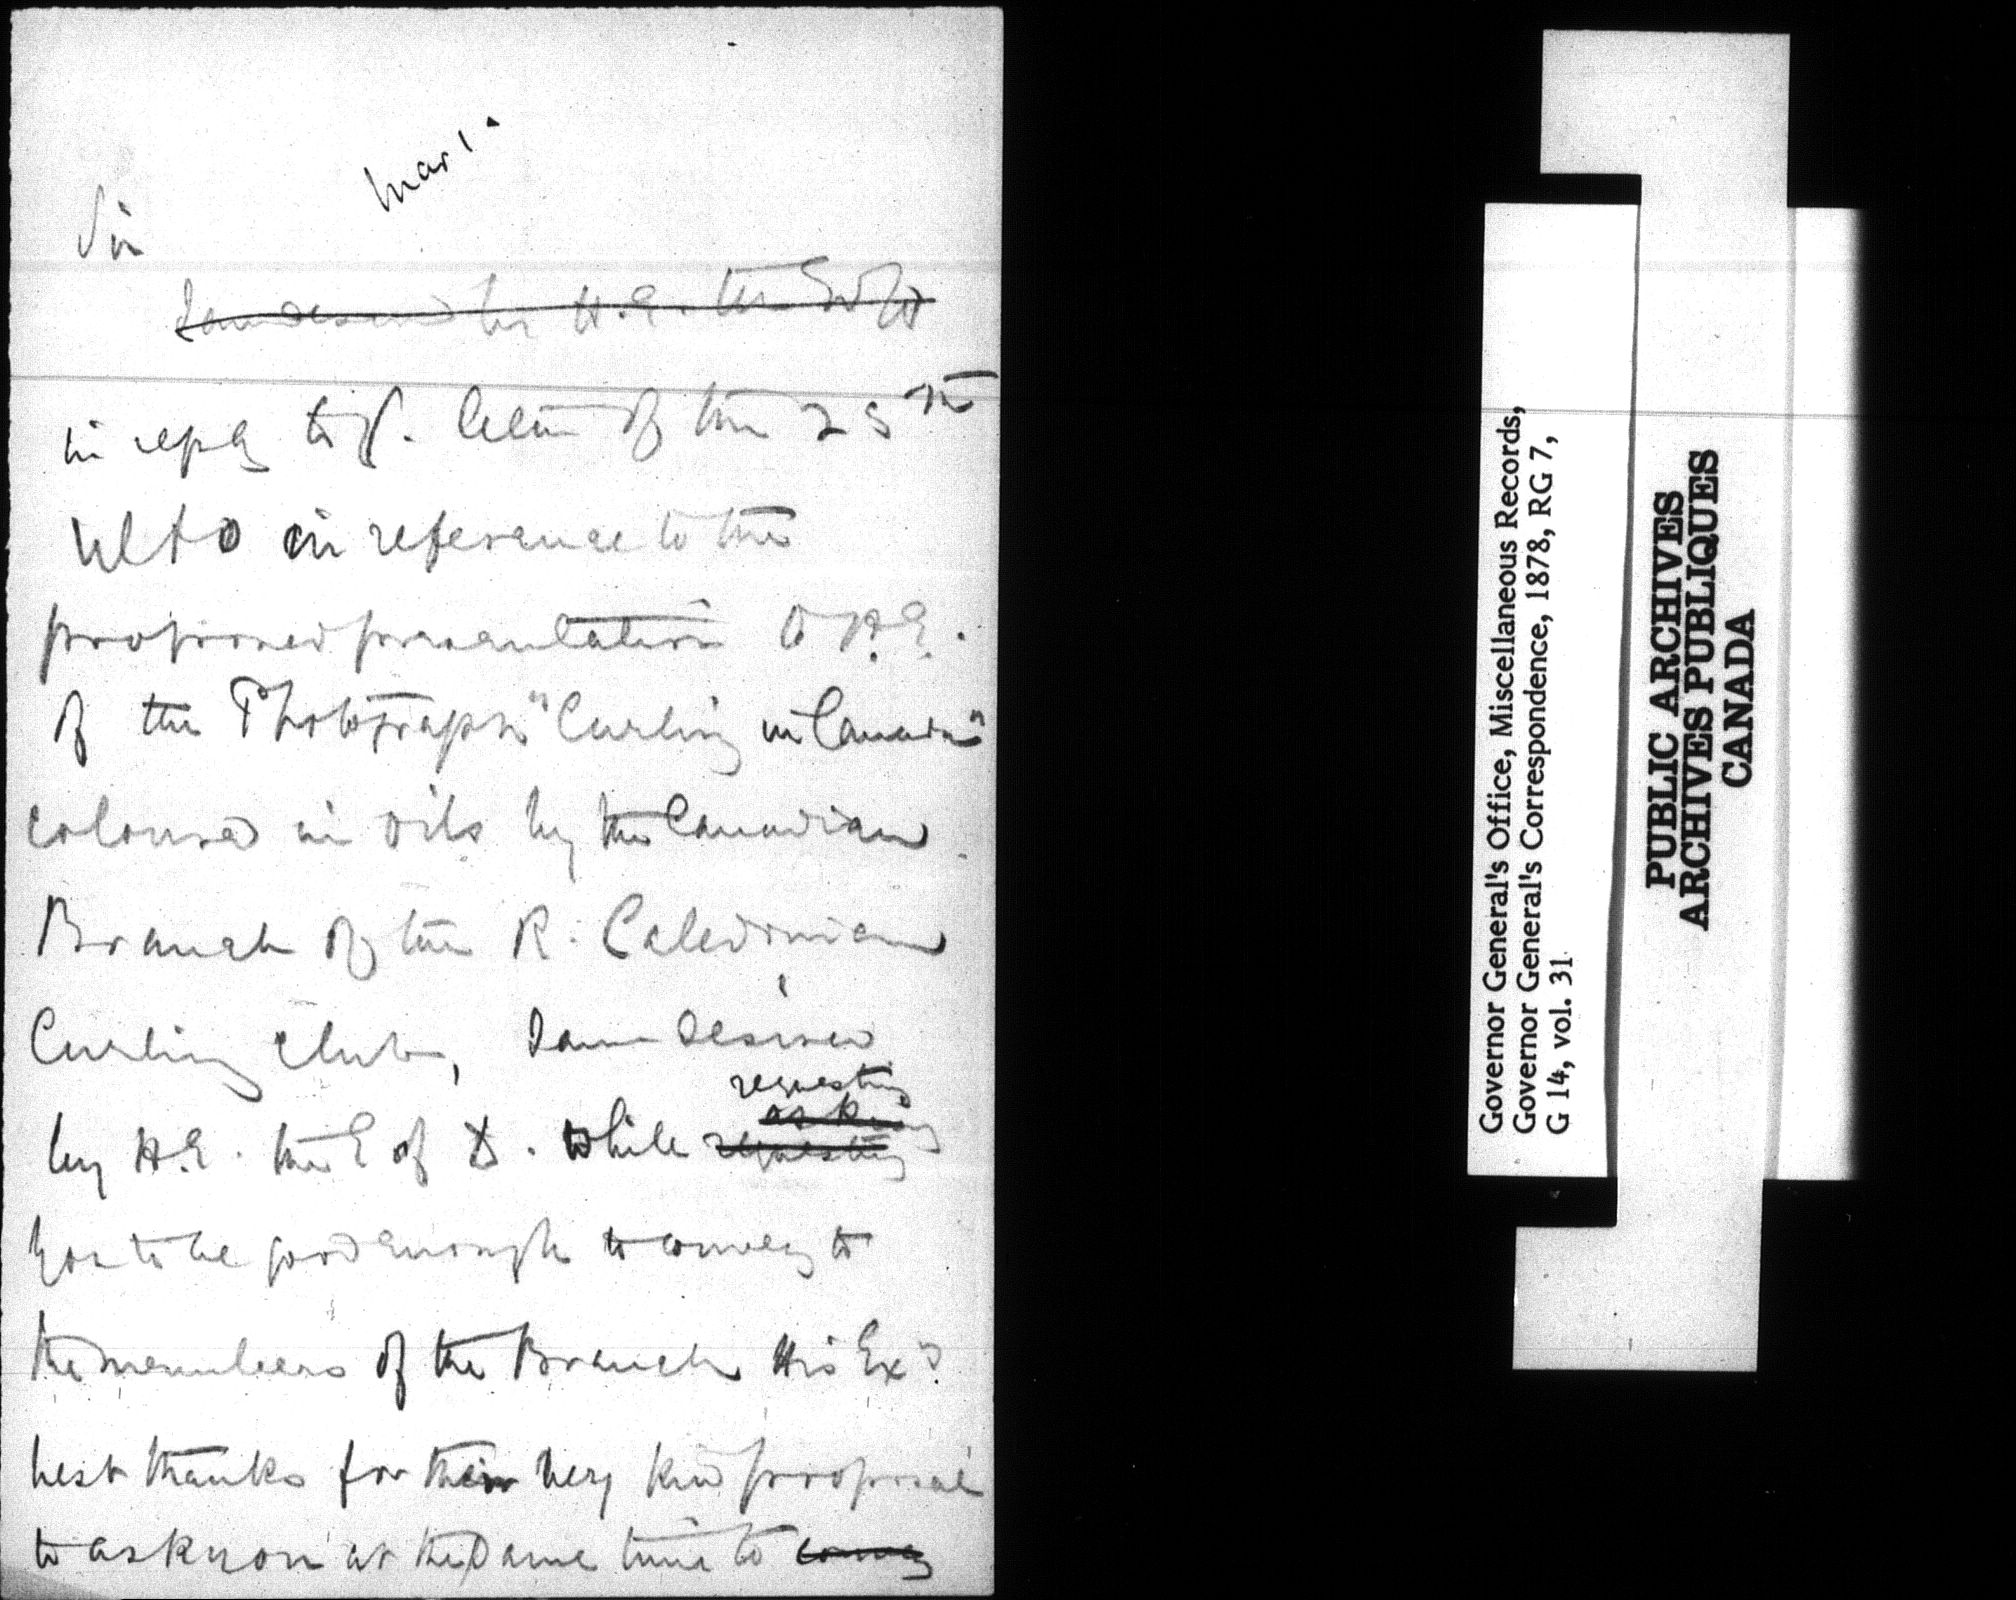 Mar 1.
Sir
I am desired by H.E. the
in reply to y. letter of the 25th
ulto in reference to the
proposed presentation to H.E.
of the Photograph "Curling in Canada"
coloured in oils by the Canadian
Branch of the R. Caledonian
Curling Club, I am desired
requesting
asking
by H.E. the E of D. while requesting
you to be good enough to convey to
the members of the Branch His Exys
best thanks for their very kind proposal
to ask you at the same time to convey
Governor General's Office, Miscellaneous Records,
Governor General's Correspondence, 1878, RG 7,
G 14, vol. 31
PUBLIC ARCHIVES
ARCHIVES PUBLIQUES
CANADA